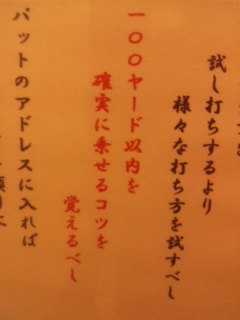 試し打ちするより
様々な打ち方を試すべし
一〇〇ヤード以内を
確実に乗せるコツを
覚えるべし
パットのアドレスに入れば